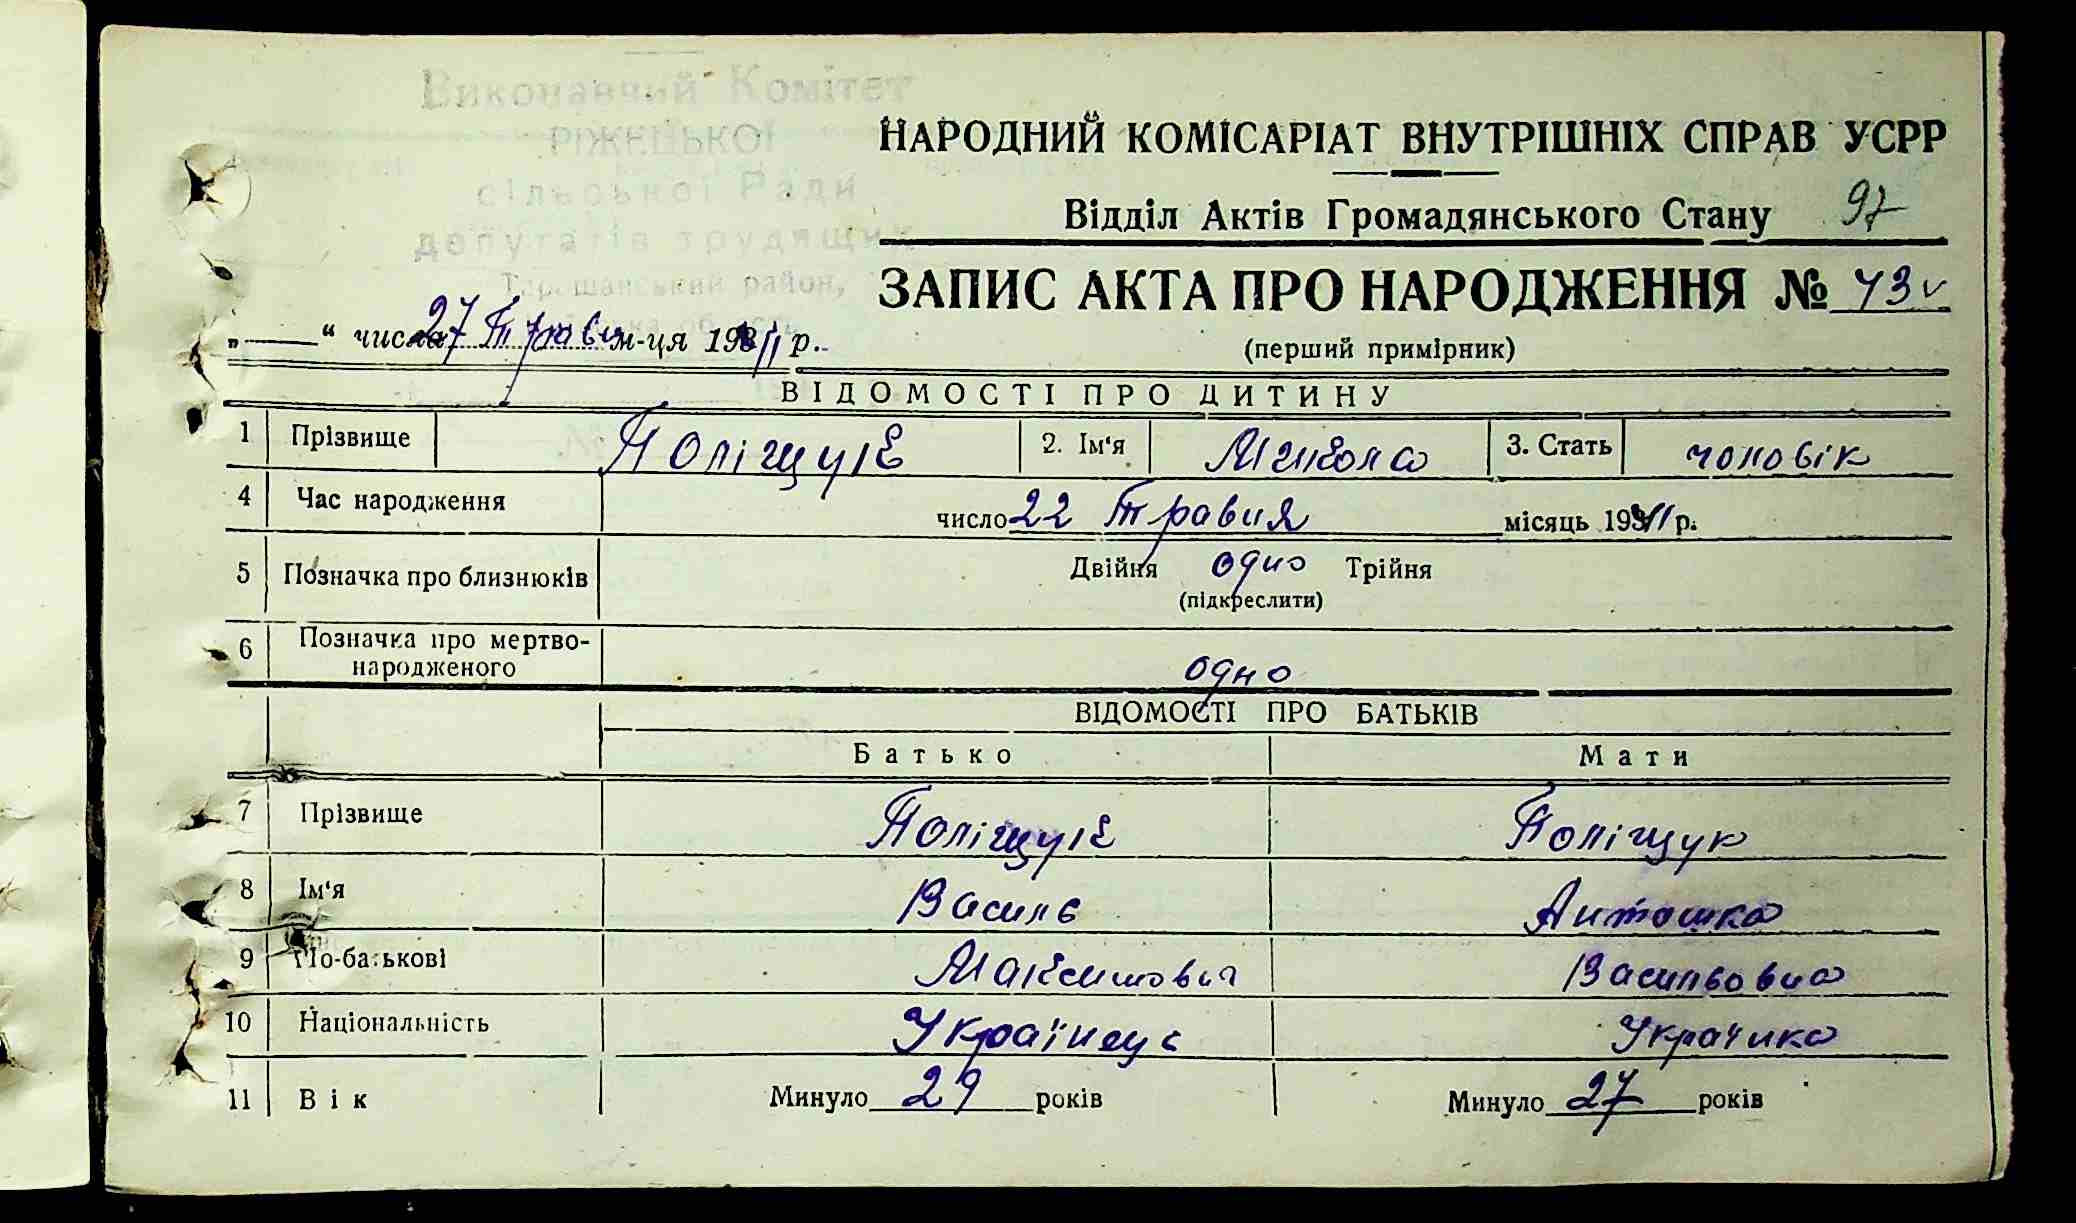 Виконавчий Комітет
РІЖЕЦЬКОЇ
сільської Ради
депутатів трудящих
район,
НАРОДНИЙ КОМІСАРІАТ ВНУТРІШНІХ СПРАВ УСРР
Відділ Актів Громадянського Стану 97
ЗАПИС АКТА ПРО НАРОДЖЕННЯ №
(перший примірник)
„ “ числа 27 Травня м-ця 19 р.
ВІДОМОСТІ ПРО ДИТИНУ
1 Прізвище Поліщук 2. Ім'я Микола 3. Стать чоловік
4 Час народження число 22 Травня місяць 19 р.
5 Позначка про близнюків Двійня одно Трійня
(підкреслити)
6 Позначка про мертво-
народженого одно
ВІДОМОСТІ ПРО БАТЬКІВ
Батько Мати
7 Прізвище Поліщук Поліщук
8 Ім'я Василь
9 По-батькові Максимович Васильовна
10 Національність Українець Українка
11 Вік Минуло 29 років Минуло 27 років